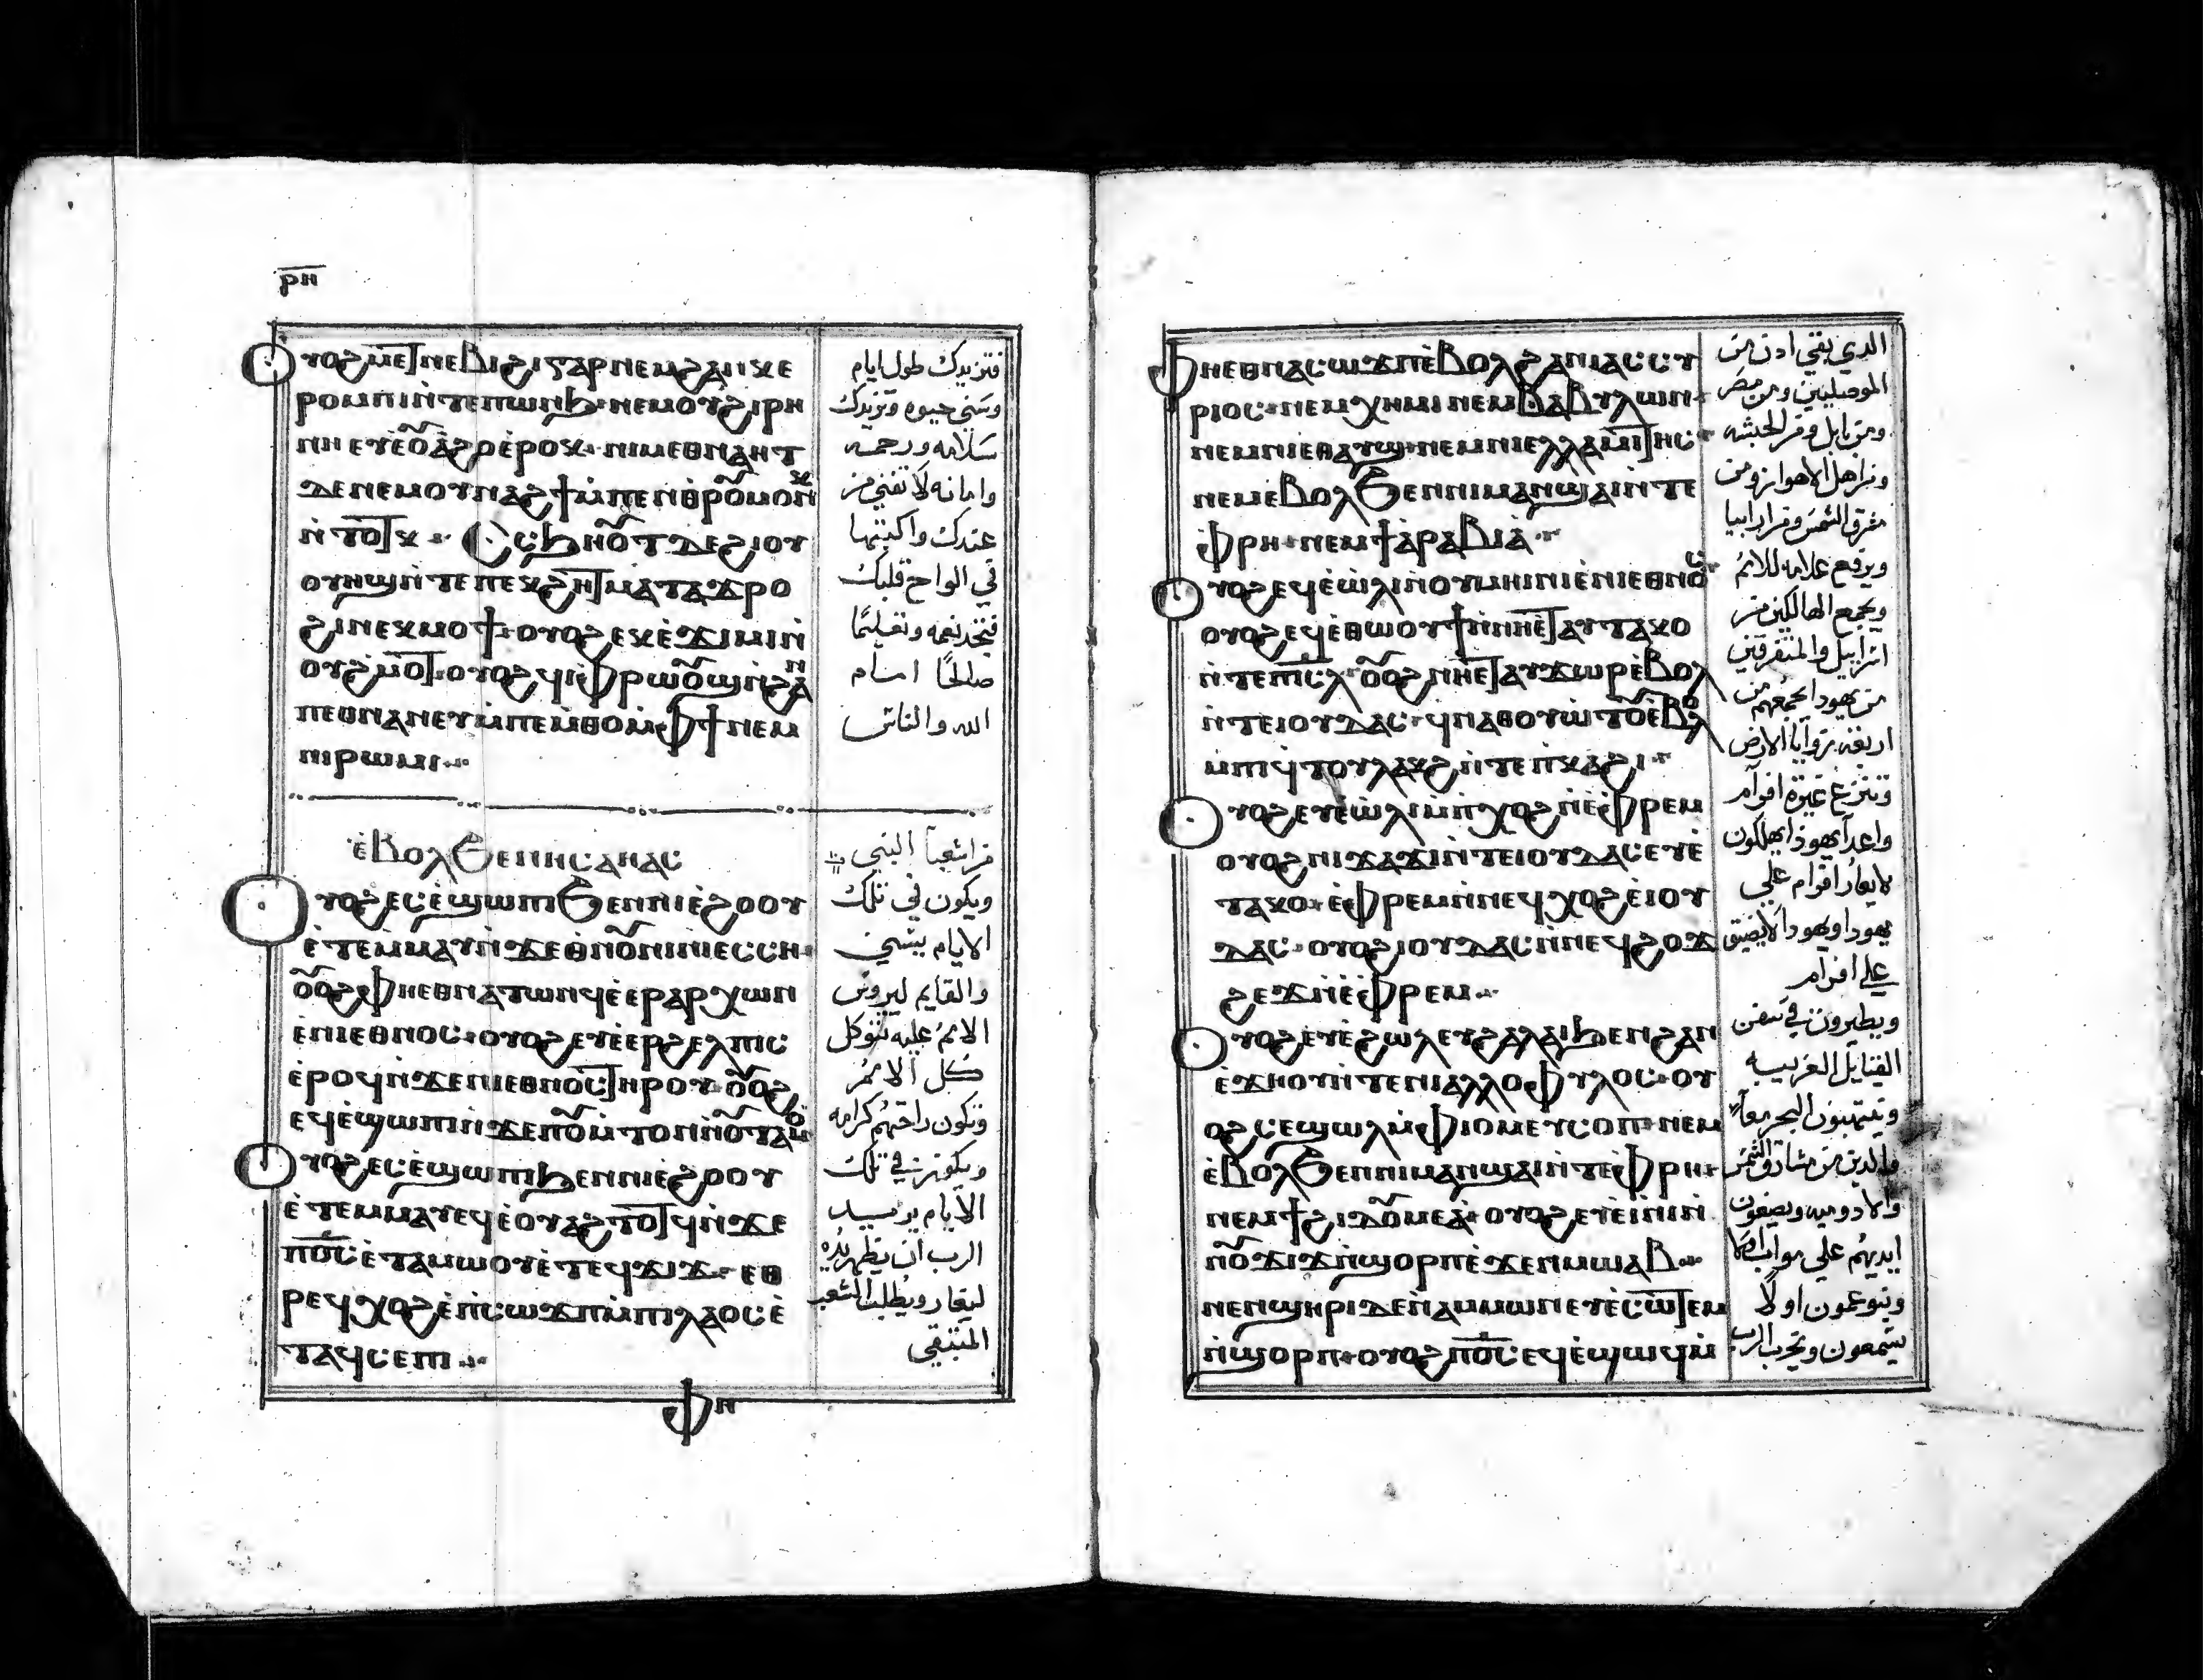 ⲣⲏ
ⲟⲩⲟϩ ⲙⲉⲧⲛⲉⲃⲓϩⲓ ⲅⲁⲣ ⲛⲉⲙ ϩⲁⲛⲭⲉ
ⲣⲟⲙⲡⲓ ⲛ̀ⲧⲉ ⲡⲱⲛϧ ⲛⲉⲙ ⲟⲩϩⲓⲣⲏ
ⲛⲏ ⲉⲩⲉ̀ⲟⲩⲁ̀ϩ ⲟⲩ ⲉ̀ⲣⲟⲕ
ⲇⲉ ⲛⲉⲙ ⲟⲩⲛⲁϩϯ ⲙ̀ⲡⲉⲛⲑⲣⲟⲩⲙⲟⲩⲛⲕ
ⲛ̀ⲧⲟⲧⲕ
ⲟⲩⲏϣ ⲛ̀ⲧⲉ ⲡⲉⲕϩⲏⲧ ⲙⲁⲧⲁϫⲣⲟ
ϩⲓ ⲛⲉⲕⲙⲟϯ ⲟⲩⲟϩ ⲉⲕⲉ̀ϫⲓⲙⲓ ⲛ̀
ⲟⲩϩⲙⲟⲧ ⲟⲩⲟϩ ϥⲓ ⲫⲣⲱⲟⲩϣ ⲛ̀ϩⲁⲛ
ⲡⲉⲑⲛⲁⲛⲉⲩ ⲙ̀ⲡⲉⲙⲑⲟ ⲙ̀ⲫϯ ⲛⲉⲙ
ⲛⲓⲣⲱⲙⲓ
ⲉ̀ⲃⲟⲗϧⲉⲛ ⲏⲥⲁⲏⲁⲥ
ⲟⲩⲟϩ ⲉⲥⲉ̀ϣⲱⲡⲓ ϧⲉⲛ ⲛⲓⲉ̀ϩⲟⲟⲩ
ⲉ̀ⲧⲉⲙⲙⲁⲩ ⲛ̀ϫⲉ ⲑⲛⲟⲩⲛⲓ ⲛ̀ⲓⲉⲥⲥⲏ
ⲟⲩⲟϩ ⲫⲏⲉⲑⲛⲁⲧⲱⲛϥ ⲉ̀ⲉⲣⲁⲣⲭⲱⲛ
ⲉ̀ⲛⲓⲉⲑⲛⲟⲥ ⲟⲩⲟϩ ⲉⲩⲉ̀ⲉⲣϩⲉⲗⲡⲓⲥ
ⲉ̀ⲣⲟϥ ⲛ̀ϫⲉ ⲛⲓⲉⲑⲛⲟⲥ ⲧⲏⲣⲟⲩ ⲟⲩⲟϩ
ⲉϥⲉ̀ϣⲱⲡⲓ ⲛ̀ϫⲉ ⲡⲟⲩⲙ̀ⲧⲟⲛ ⲛⲟⲩⲧⲁⲓⲟ
ⲟⲩⲟϩ ⲉⲥⲉ̀ϣⲱⲡⲓ ϧⲉⲛ ⲛⲓⲉ̀ϩⲟⲟⲩ
ⲉ̀ⲧⲉⲙⲙⲁⲩ ⲉϥⲉ̀ⲟⲩⲁϩⲧⲟⲧϥ ⲛ̀ϫⲉ
ⲡⲟ̅ⲥ̅ ⲉ̀ⲧⲁⲙⲱⲟⲩ ⲉ̀ⲧⲉϥϫⲓϫ ⲉⲑ
ⲣⲉϥⲭⲟϩ ⲉ̀ⲡⲥⲱϫⲡ ⲙ̀ⲡⲓⲗⲁⲟⲥ ⲉ̀
ⲧⲁϥⲥⲉⲡⲓ
ⲫⲏ
فتزيدك طول ايام
وسني حيوه وتزيدك
سلامه ورحمه
وامانه لا تفني من
عندك واكتبها
في الواح قلبك
فتجد نعمه
صالحًا امام
الله والناس
من اشعيا النبي
ويكون في تلك
الايام
والقايم ليروس
الامم عليه تتوكل
كل الامم
وتكون راحتهم كرامه
ويكون في تلك
الايام يزيد
الرب ان يظهر يده
ليغار ويطلب الشعب
المتبقي
ⲫⲏⲉⲑⲛⲁⲥⲱϫⲡ ⲉ̀ⲃⲟⲗϩⲁ ⲛⲓⲁⲥⲥⲩ
ⲣⲓⲟⲥ ⲛⲉⲙ ⲭⲏⲙⲓ ⲛⲉⲙ ⲃⲁⲃⲩⲗⲱⲛ
ⲛⲉⲙ ⲛⲓⲉⲑⲁⲩϣ ⲛⲉⲙ ⲛⲓⲉⲗⲗⲁⲙⲓⲧⲏⲥ
ⲛⲉⲙ ⲉ̀ⲃⲟⲗϧⲉⲛ ⲛⲓⲙⲁⲛϣⲁⲓ ⲛ̀ⲧⲉ
ⲫ̀ⲣⲏ ⲛⲉⲙ ϯⲁ̀ⲣⲁⲃⲓⲁ̀
ⲟⲩⲟϩ ⲉϥⲉ̀ⲱ̀ⲗⲓ ⲛ̀ⲟⲩⲙⲏⲓⲛⲓ ⲉ̀ⲛⲓⲉⲑⲛⲟⲥ
ⲟⲩⲟϩ ⲉϥⲉ̀ⲑⲱⲟⲩϯ ⲛ̀ⲛⲏⲉⲧⲁⲩⲧⲁⲕⲟ
ⲛ̀ⲧⲉ ⲡⲓⲥ̅ⲗ̅ ⲟⲩⲟϩ ⲛⲏⲉⲧⲁⲩϫⲱⲣ ⲉ̀ⲃⲟⲗ
ⲛ̀ⲧⲉ ⲓⲟⲩⲇⲁⲥ ϥⲛⲁⲑⲟⲩⲱ̀ⲧⲟⲩ ⲉ̀ⲃⲟⲗ
ⲙ̀ⲡⲓϥ̀ⲧⲟⲩ ⲗⲁⲕϩ ⲛ̀ⲧⲉ ⲡ̀ⲕⲁϩⲓ
ⲟⲩⲟϩ ⲉⲩⲉ̀ⲱ̀ⲗⲓ ⲙ̀ⲡ̀ⲭⲟϩ ⲛ̀ⲉ̀ⲫⲣⲉⲙ
ⲟⲩⲟϩ ⲛⲓϫⲁϫⲓ ⲛ̀ⲧⲉ ⲓⲟⲩⲇⲁⲥ ⲉⲩⲉ̀
ⲧⲁⲕⲟ ⲉ̀ⲫⲣⲉⲙ ⲛ̀ⲛⲉϥⲭⲟϩ ⲉ̀ⲓⲟⲩ
ⲇⲁⲥ ⲟⲩⲟϩ ⲓⲟⲩⲇⲁⲥ ⲛ̀ⲛⲉϥϩⲟϫ
ϩⲉϫ ⲛ̀ⲉ̀ⲫⲣⲉⲙ
ⲟⲩⲟϩ ⲉⲩⲉ̀ϩⲱⲗ ⲉⲩϩⲁⲗⲁⲓ ϧⲉⲛ ϩⲁⲛ
ⲉ̀ϫⲏⲟⲩ ⲛ̀ⲧⲉ ⲛⲓⲁⲗⲗⲟⲫⲩⲗⲟⲥ ⲟⲩ
ⲟϩ ⲥⲉϣⲱⲗ ⲙ̀ⲫⲓⲟⲙ ⲉⲩⲥⲟⲡ ⲛⲉⲙ
ⲉ̀ⲃⲟⲗϧⲉⲛ ⲛⲓⲙⲁⲛϣⲁⲓ ⲛ̀ⲧⲉ ⲫⲣⲏ
ⲛⲉⲙ ϯϩⲓⲇⲟⲩⲙⲉⲁ̀ ⲟⲩⲟϩ ⲉⲩⲉ̀ⲓ̀ⲛⲓ ⲛ̀
ⲛⲟⲩϫⲓϫ ⲛ̀ϣⲟⲣⲡ ⲉ̀ϫⲉⲛ ⲙⲱⲁⲃ
ⲛⲉⲛϣⲏⲣⲓ ⲇⲉ ⲛ̀ⲁⲙⲙⲱⲛ ⲉⲩⲉ̀ⲥⲱⲧⲉⲙ
ⲛ̀ϣⲟⲣⲡ ⲟⲩⲟϩ ⲡⲟ̅ⲥ̅ ⲉϥⲉ̀ϣⲱϥ ⲙ̀
الذي بقي ادن من
الموصليين ومن مصر
ومن بابل ومن الحبشه
ومن اهل الاهواز ومن
مشرق الشمس ومن ارابيا
ويرفع علامه للامم
ويجمع الهالكين من
اسراييل والمتفرقين
من يهودا يجمعهم من
اربعة زوايا الارض
وتنتزع غيرة افرام
واعدا يهوذا يهلكون
لا يغار افرام علي
يهودا ويهودا لا يضيق
علي افرام
ويطيرون في سفن
القبايل الغريبه
وينتهبون البحر معاً
والذين من مشارق الشمس
والادوميه ويضعون
ايديهم علي مواب
وبنو عمون اولًا
يسمعون ويخرب الرب